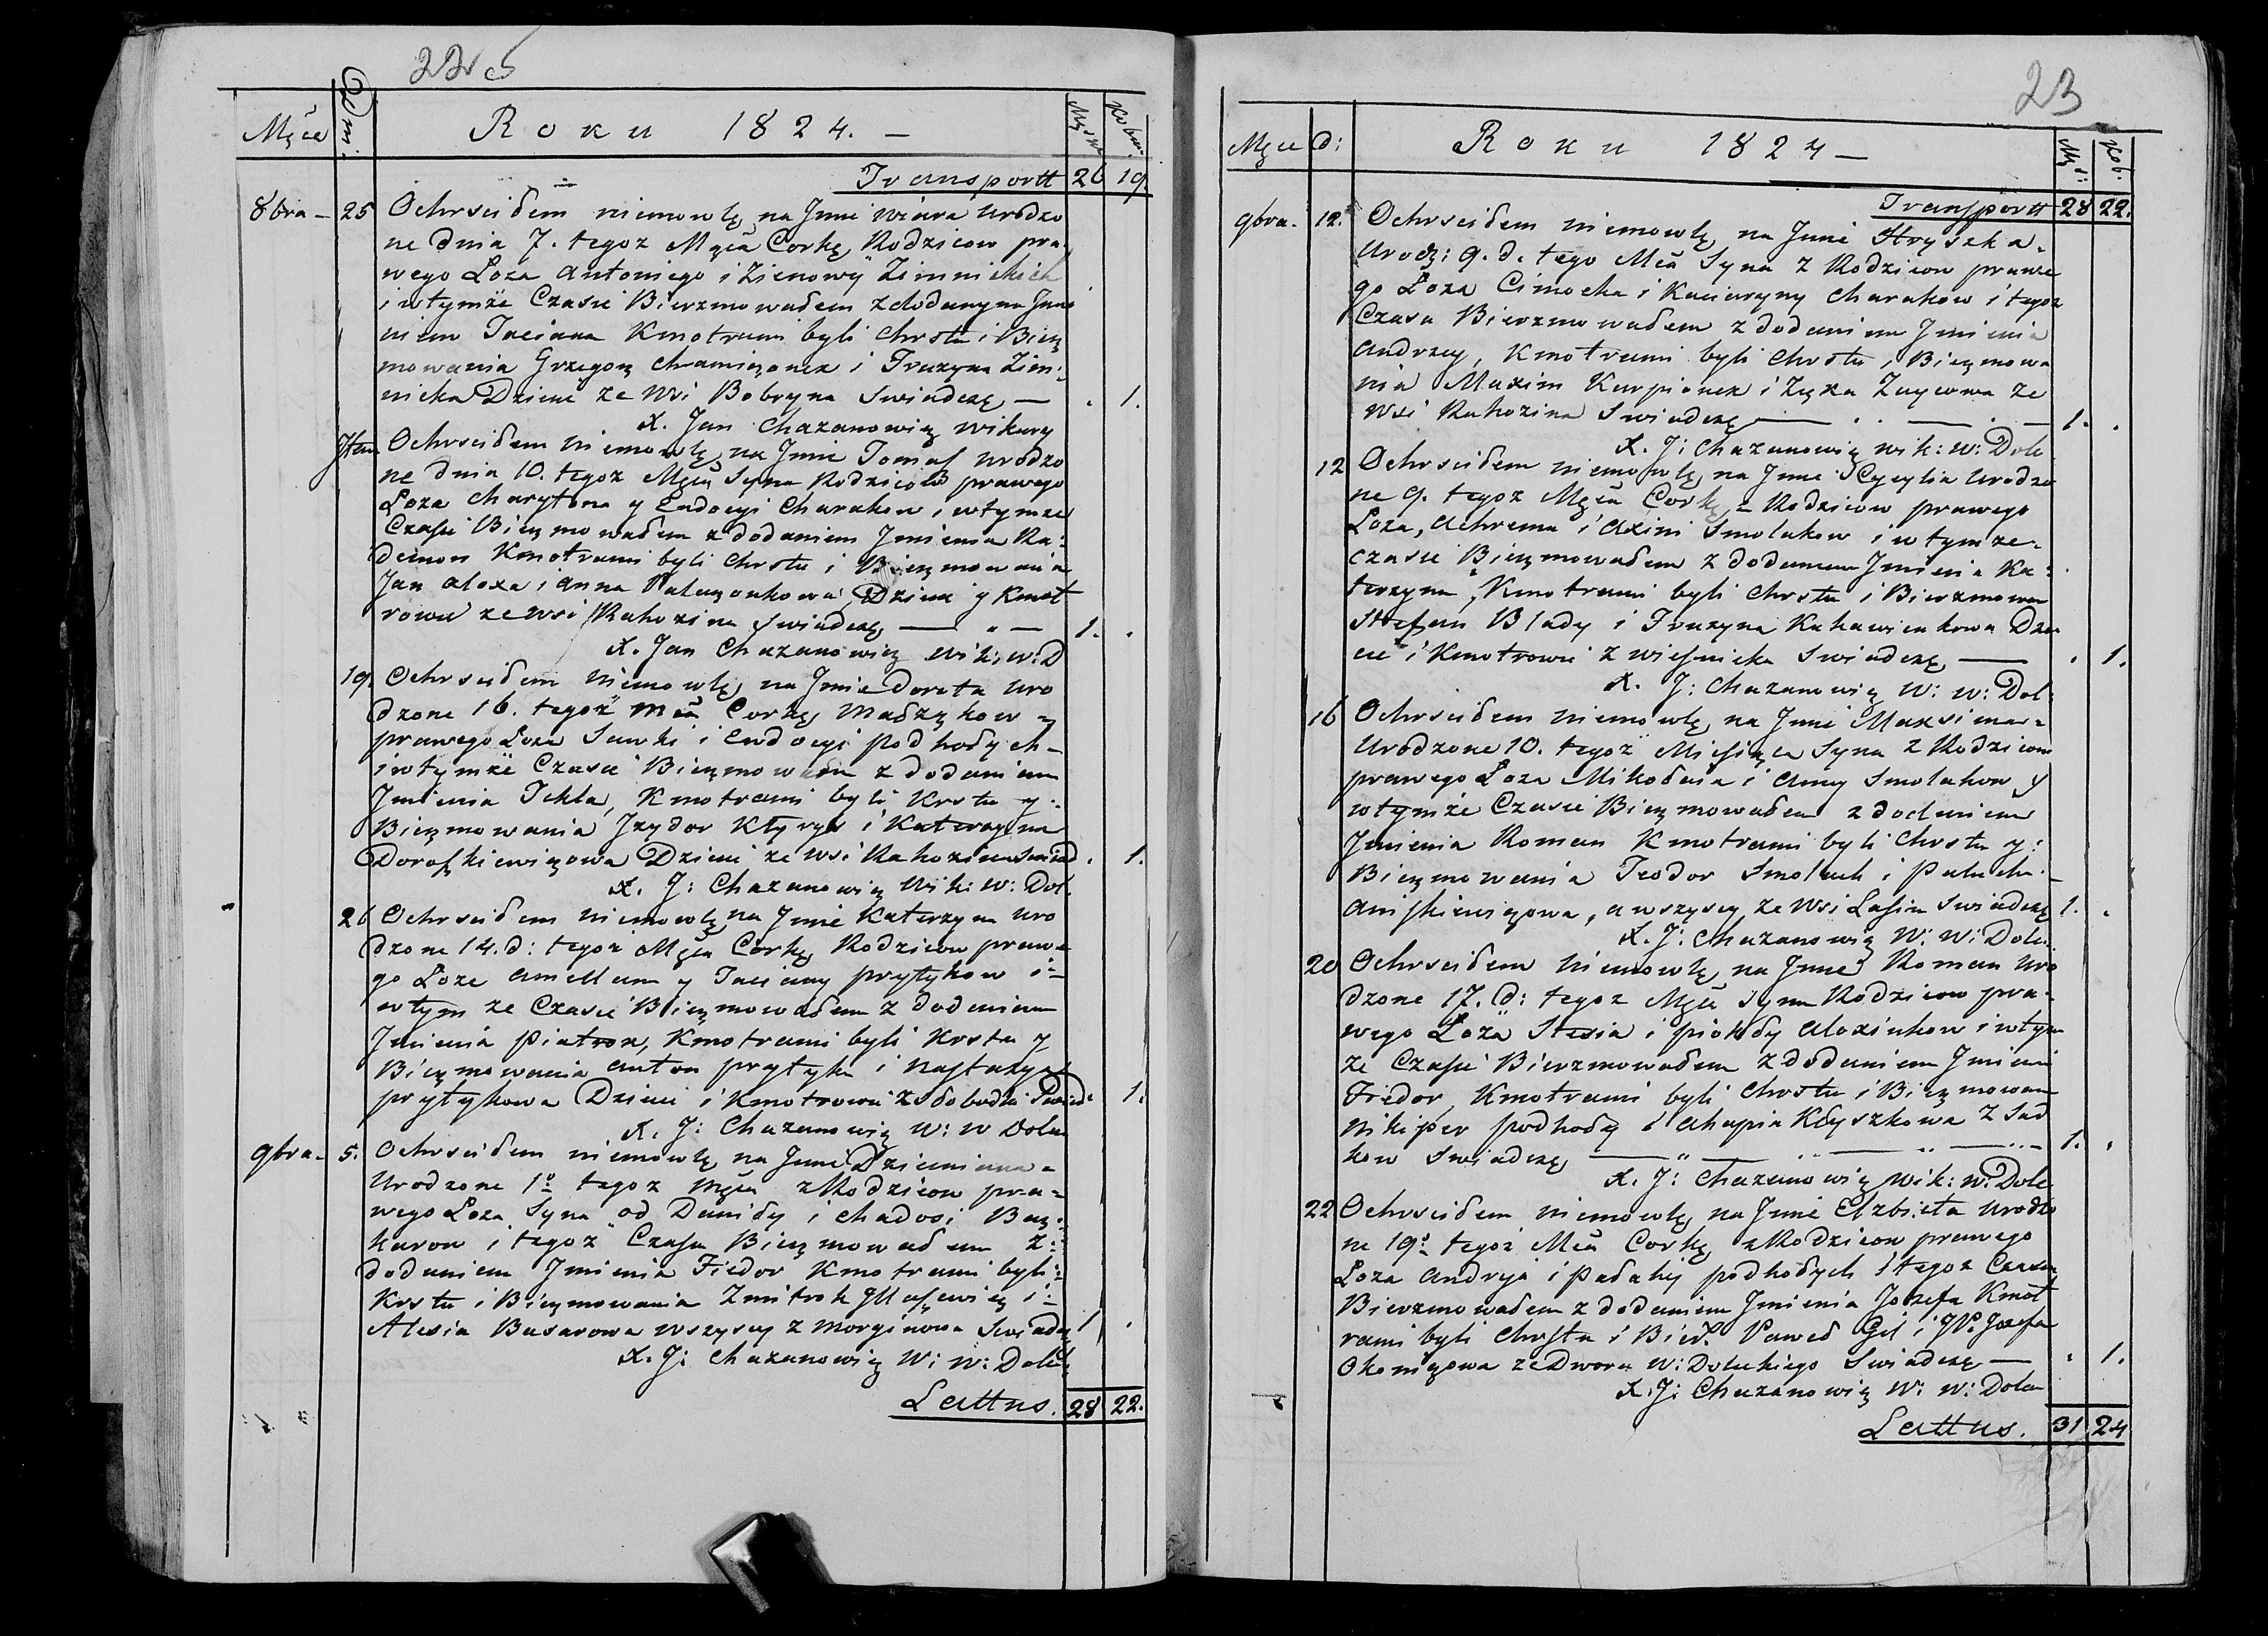 22 c
Męce Dni Roku 1824. — Męsk Kobie.
Transportt 26 19.
8bra — 25 Ochrsciłem niemowlę na Jmie Wiara urodzo
ne dnia 7. tegoz Męca Corkę Rodzicow pra
wego Loza Antoniego i Zienowij Zimnickich
i wtymże Czasie Bierzmowałem z dodanym Jmie
niem Taciana Kmotrami byli Chrstu i Bierz
mowania Grzegorz Chamiczonek i Fruzyna Zim
nicka Dziecie ze Wsi Bobryna Swiadczę — . 1.
X. Jan Chazanowicz Wikary
Item Ochrsciłem niemowlę na Jmie Tomasz urodzo
ne dnia 10. tegoz Męca Syna Rodzicow prawego
Loza Charytona y Endocyi Charukow i wtymze
Czasie Bierzmowałem z dodaniem Jmienia Ra
demon Kmotrami byli Chrstu i Bierzmowania
Jan Aloxa i Anna Dziecie y Kmot
rowie ze wsi Rahozina Swiadczę — " — 1. .
X. Jan Chazanowicz Wik: w: D
19. Ochrsciłem Niemowlę na Jmie Dorota uro
dzone 16. tegoż Mca Corkę Madzykow
prawego Loza Sawki i Endocyi Podhołych
i wtymże Czasie Bierzmowałem z dodaniem
Jmienia Tekla, Kmotrami byli Krstu y
Bierzmowania Jzydor Kłyryk i Katerzyna
Doroszkiewiczowa Dziecie ze wsi Rahozina Swiad . 1.
X. J: Chazanowicz Wik: w: Dol.
26 Ochrsciłem niemowlę na Jmie Katerzyna uro
dzone 14. d: tegoż Męca Corkę Rodzicow prawe
go Loze Amelluna y Taciany Prytykow i
wtym ze Czasie Bierzmowałem z dodaniem
Jmienia Piatron, Kmotrami byli Krstu y
Bierzmowania Anton Prytyka i Nastazya
Prytykowa Dziecie i Kmotrowie z Słobodki Swiad: 1.
X. J: Chazanowicz W: w Dolu
9bra — 5. Ochrsciłem niemowlę na Jmie Dziemiana
Urodzone 1o tegoz Męca z Rodzicow pra
wego Loza Syna od Daniły i Chadosi Bus
karow i tegoż Czasu Bierzmowałem z
dodaniem Jmienia Fiedor Kmotrami byli
Krstu i Bierzmowania Zmitrok i
Alesia Busarowa wszyscy z Morginowa Swiadcz 1 .
X. J: Chazanowicz W: w: Doluc
Lattus. 28 22.
23
Męce d: Roku 1824 — Męs: Kob.
Transportt 28 22.
9bra. 12. Ochrsciłem niemowlę na Jmie Hryszka
Urodz: 9. d. tego Mca Syna z Rodzicow prawe
go Loza Cimocha i Kaciaryny Charukow i tegoz
Czasu Bierzmowałem z dodaniem Jmienia
Andrzey, Kmotrami byli Chrstu i Bierzmowa
nia Maxim Karpionek i Zuycowa ze
Wsi Rahozina Swiadczę — 1. .
X. J: Chazanowicz wik: w: Dole
12 Ochrsciłem niemowlę na Jmie Cycylia Urodzo
ne 9. tegoz Męca Corkę z Rodzicow prawego
Loza, Achrema i Axini Smolukow i wtymze
czasie Bierzmowałem z dodaniem Jmienia Ka
terzyna, Kmotrami byli Chrstu i Bierzmowa
Stefan Blady i Fruzyna Kahawienkowa Dzie
cie i Kmotrowie z Wiesnicka Swiadczę — . 1.
X. J: Chazanowicz W: w: Dol:
16 Ochrsciłem niemowlę na Jmie Maxsima
Urodzone 10. tegoż Miesiąca Syna z Rodzicow
prawego Loza Mikołaia i Anny Smolukow y
wtymże Czasie Bierzmowałem z dodaniem
Jmienia Roman Kmotrami byli Chrstu y:
Bierzmowania Teodor Smoluk i Paluchu
Aniskiewiczowa, a wszyscy ze Wsi Lasin Swiadczę 1. .
X. J: Chazanowicz W: w: Dolu
20 Ochrsciłem niemowlę na Jmie Roman uro
dzone 17. d: tegoz Męca Syna Rodzicow pra
wego Loża Stesia i Piokły Aloxiukow i wtym
ze Czasie Bierzmowałem z dodaniem Jmieni
Fiedor, Kmotrami byli Chrstu i Bierzmowan
Nikiper Podhoły i Ahapia Kłyszkowa z Sad
kow Swiadczę — " — 1. .
X. J: Chazanowicz Wik: w: Dole
22 Ochrsciłem niemowlę na Jmie Elzbieta Urodzo
ne 19o tegoż Mca Corkę z Rodzicow prawego
Loza Andryja i Pałahij Podhołych i tegoz Czasu
Bierzmowałem z dodaniem Jmienia Jozefa Kmot
rami byli Chrstu i Bier. Paweł Gil i JP. Jozefa
Okoniczowa ze Dworu W: Doluckiego Swiadczę — . 1.
X. J: Chazanowicz W: w: Dolu
Lattus. 31 24